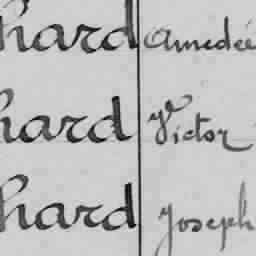 hard Amedée
hard Victor
hard Joseph